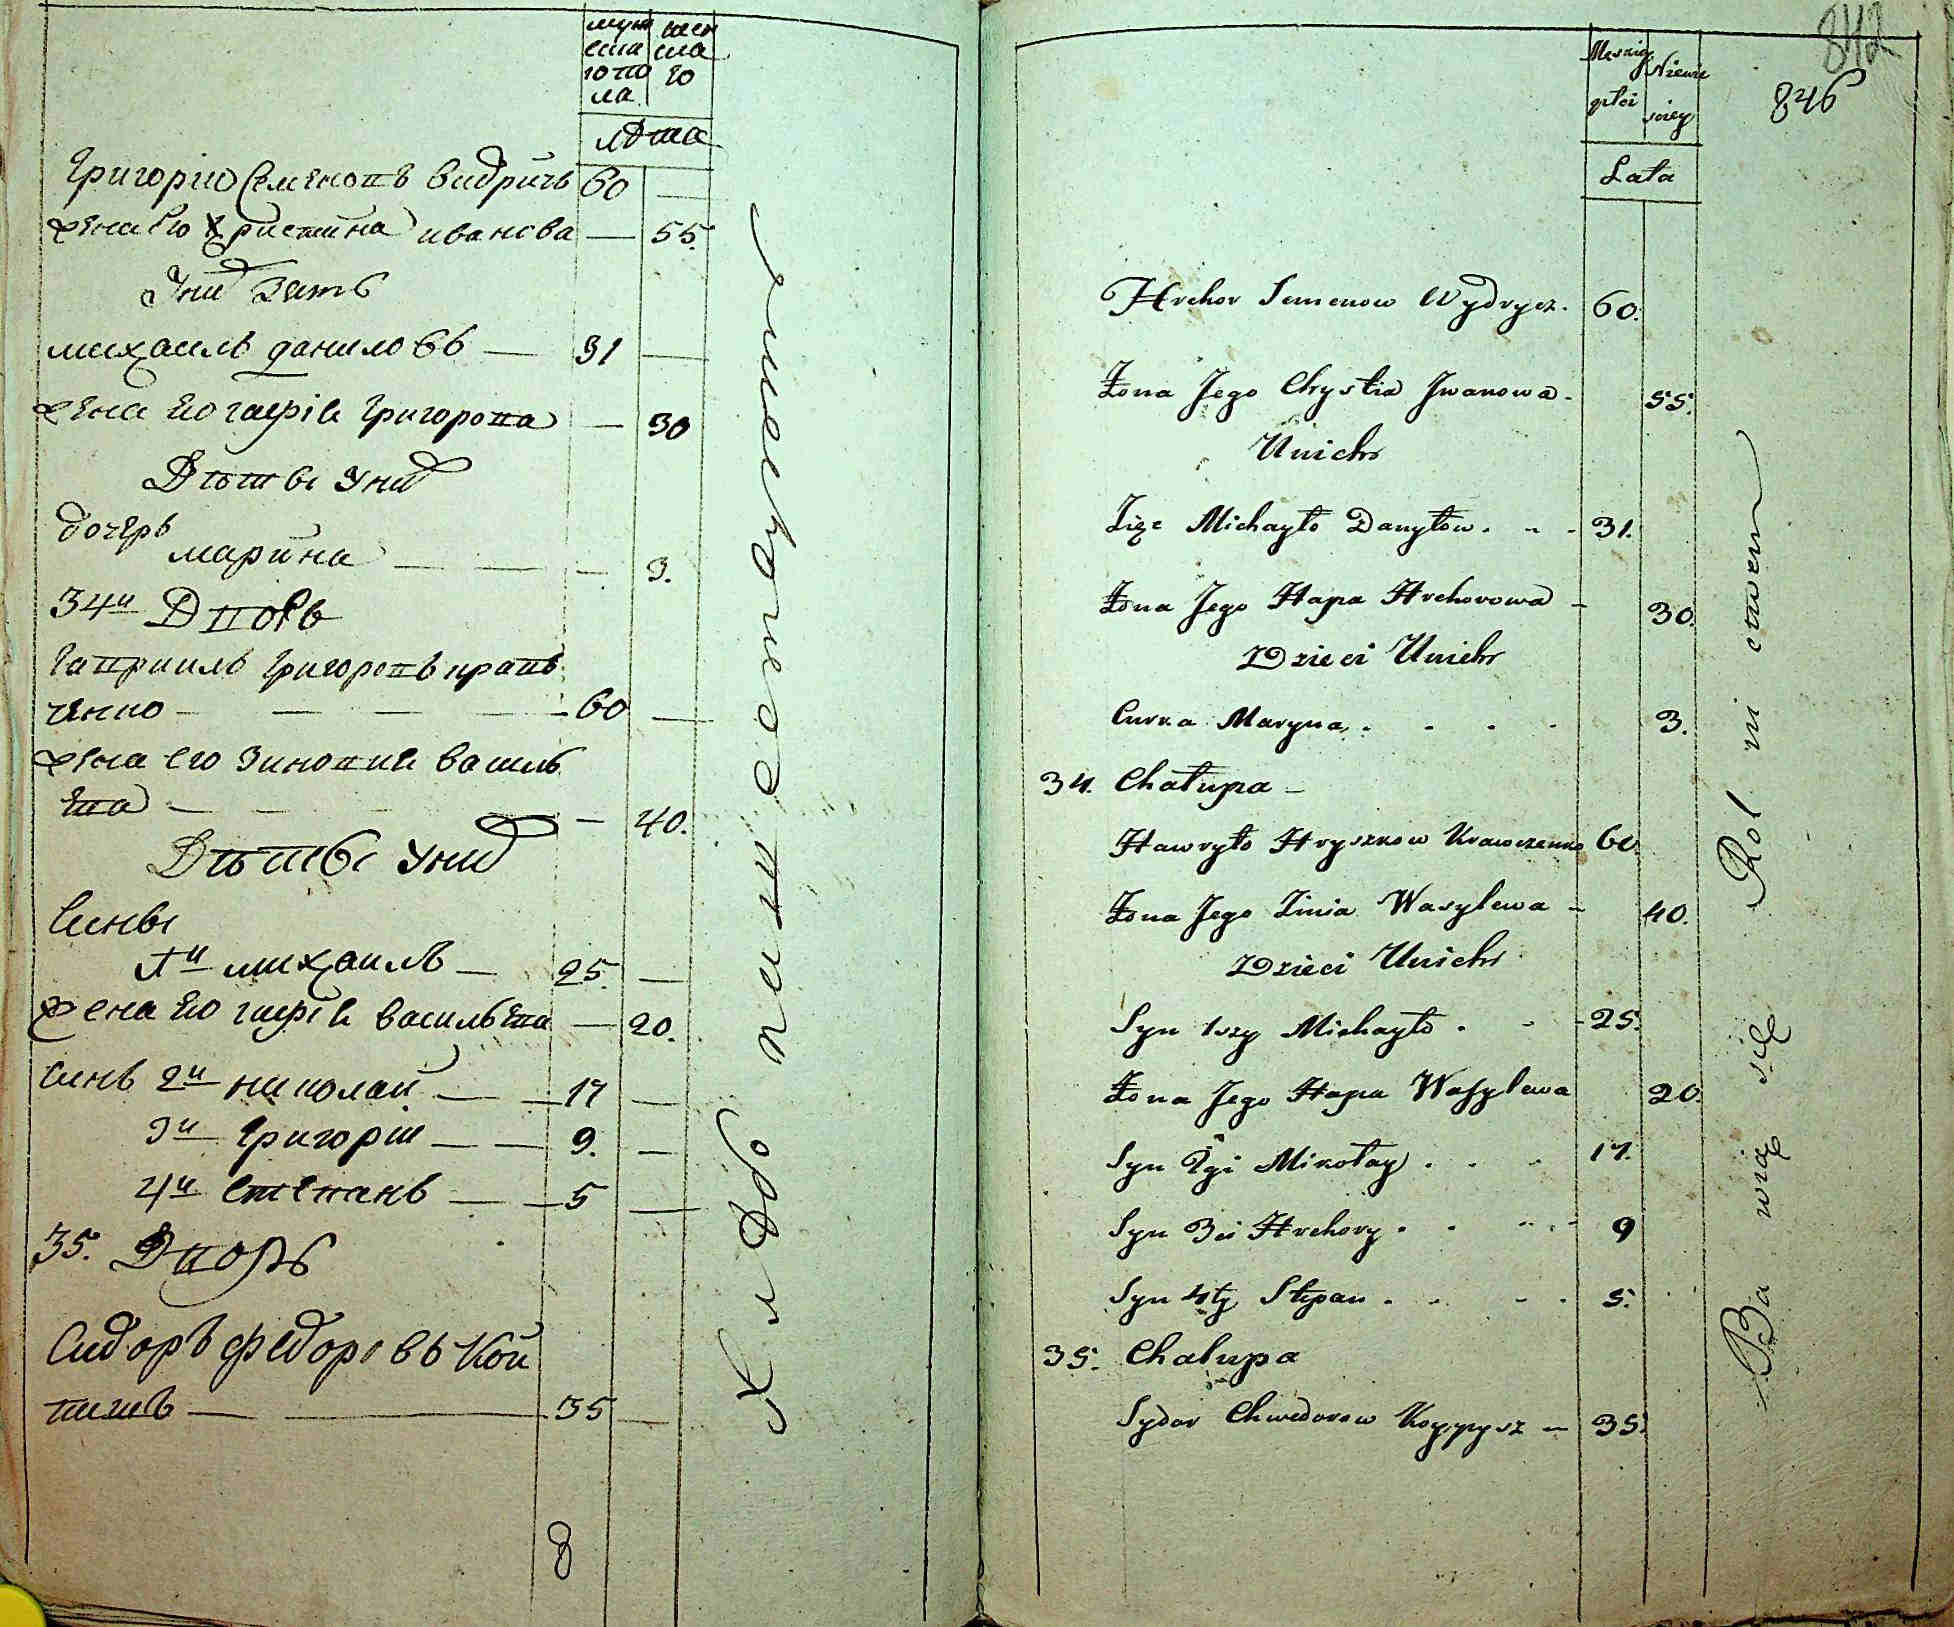 мужеска го пола
женска го
лѣта
Григорій Семеновъ Видричъ 60 —
жена его Христина иванова — 55.
Ихъ зять
михаилъ даниловъ — 31 —
жена его гапіа григорова — 30
Дѣты Ихъ
дочерь
марина — — — 3.
34й Дворъ
Гавриилъ григоровъ крав
ченко — — — — 60 —
жена его Зиновиа василь
ева — — — 40.
Дѣты Ихъ
Сины
1й михаилъ — 25. —
жена его гапіа васильева — 20.
Синъ 2й николай — — 17 —
3й григорій — — 9. —
4й степанъ — — 5 —
35. Дворъ
Сидоръ федоровъ Кой
пишъ — — 35 —
8
Хлѣбопашествомъ
842
846
Męzkiej płci
Niewie sciey
Lata
Hrehor Semenow Wydrycz. 60.
Żona Jego Chrystia Jwanowa - 55.
Unich
Zięc Michayło Danyłow. - - 31.
Żona Jego Hapa Hrehorowa - 30.
Dzieci Unich
Curka Maryna. . . . . 3.
34. Chałupa -
Hawryło Hryszkow Krawczenko 60
Żona Jego Zinia Wasylewa - 40.
Dzieci Unich
Syn 1szy Michayło . - - 25.
Żona Jego Hapa Wasylewa 20.
Syn 2gi Mikołay . . . 17.
Syn 3ci Hrehory . . - - 9
Syn 4ty Stepan . . - . 5.
35. Chalupa
Sydor Chwedorow Koypysz - 35.
Ba wią się Rol ni ctwem